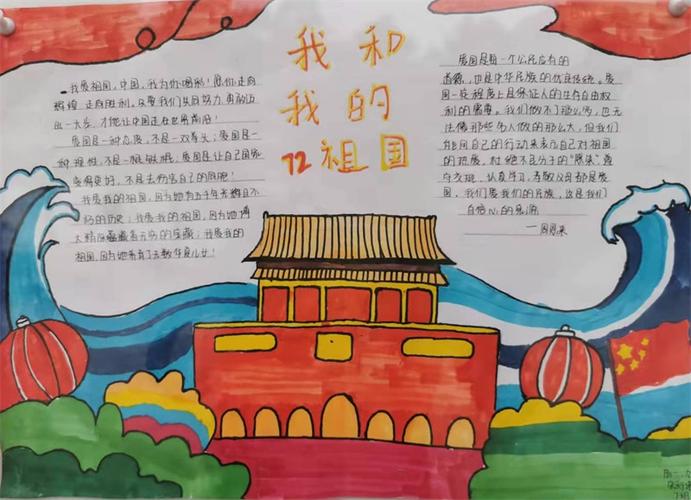 我和
我的
72祖国
我爱祖国,中国,我为你喝彩!愿你走向
辉煌,走向胜利。只要我们生日努力,勇敢迈出
一大步,才能让中国走在世界前沿!
爱国是一种态度,不是一双拳头;爱国是一
种理性,不是一腔敏感;爱国是让自己国家
变得更好,不是去伤害自己的同胞!
我爱我的祖国,因为她有五千年
的历史;我爱我的祖国,因为她博
大精深蕴藏着无穷的宝藏;我爱我的
祖国,因为她养育了无数华夏儿女!
爱国是每一个公民应有的
道德,也是中华民族的优良传统。爱
国一定程度上是保证人的生存自由权
利的需要。我们做不了
法像那些伟人做的那么大,但我们
能用自己的行动来表示自己对祖国
的热爱,杜绝不良分子的
遵守交规,认真学习,孝敬父母都是爱
国,我们爱我们的民族,这是我们
自信心的泉源
—周恩来